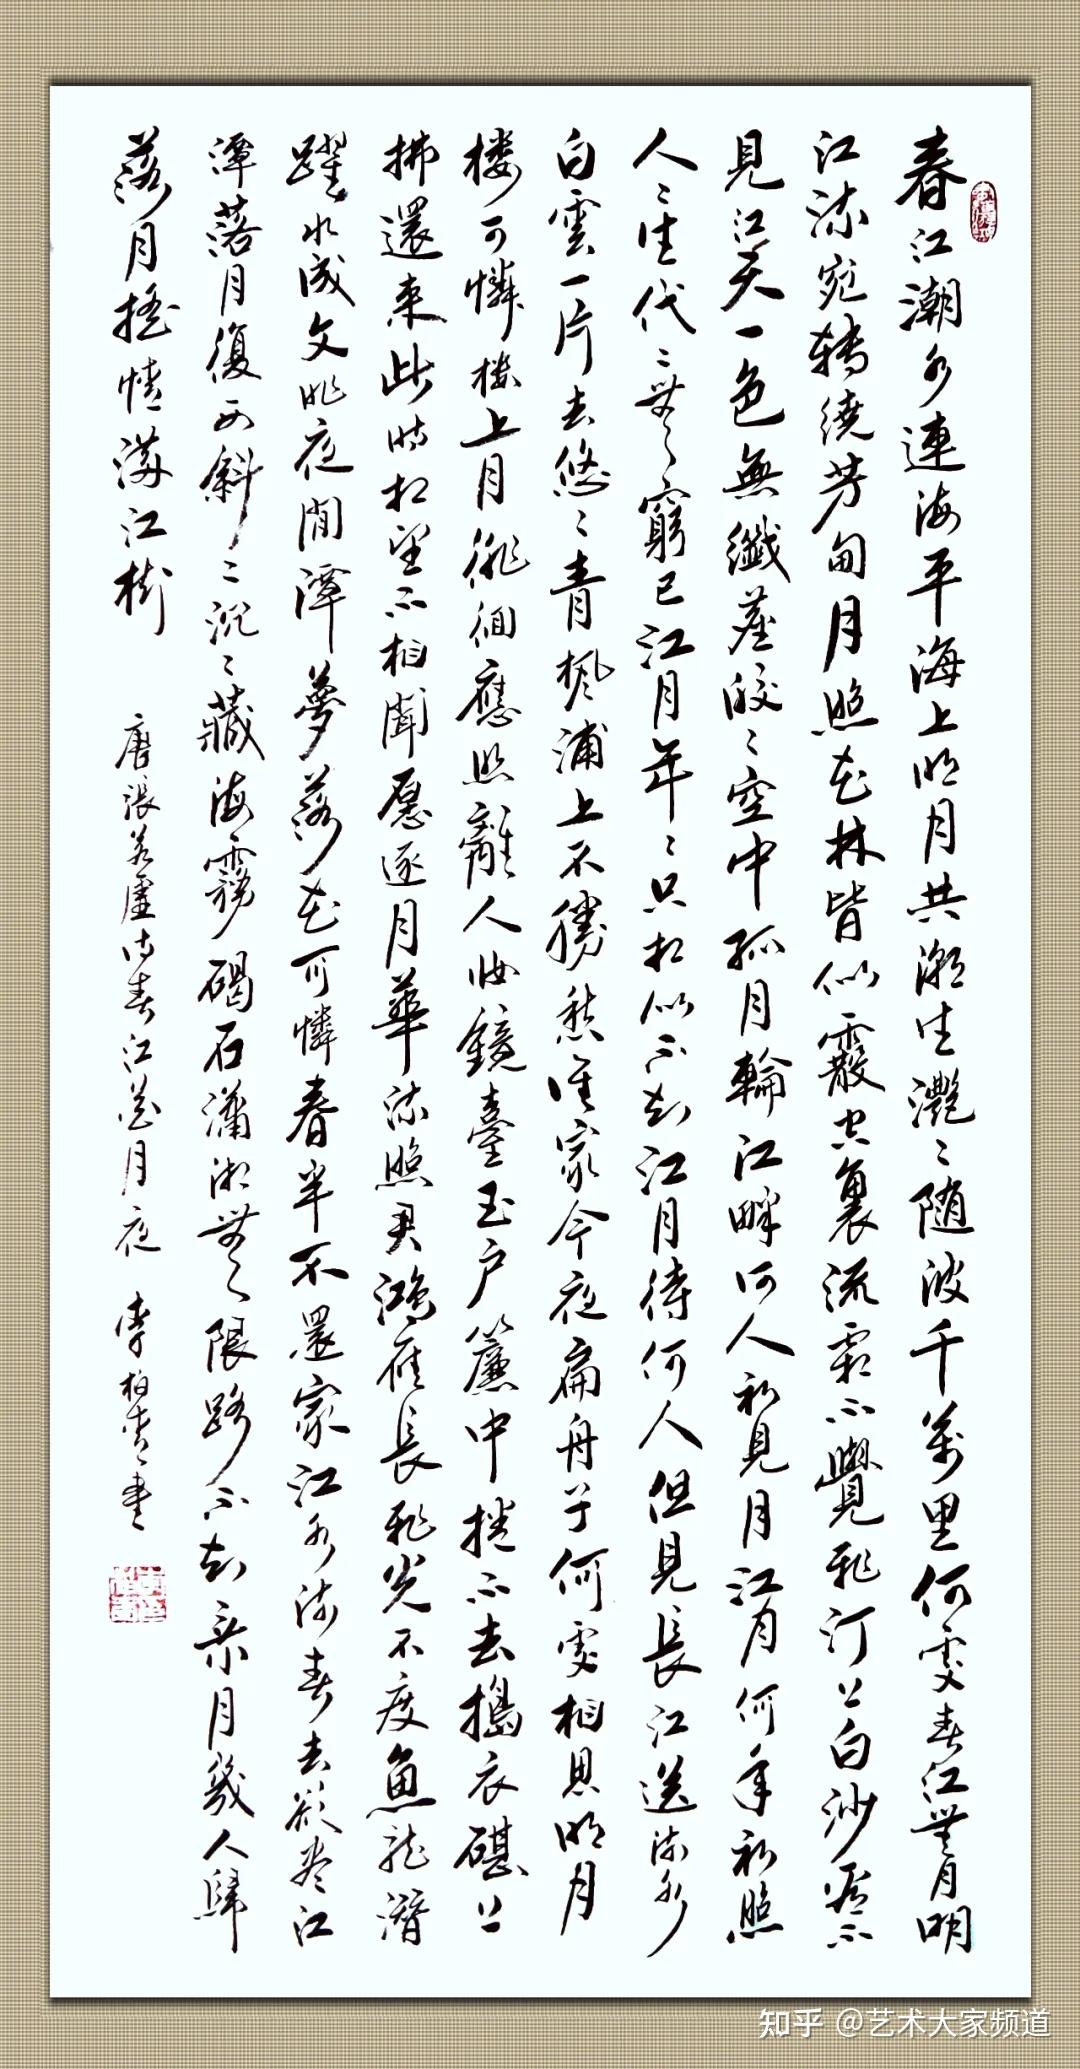 春江潮水連海平海上明月共潮生灧〻随波千萬里何處春江無月明
江流宛轉繞芳甸月照花林皆似霰空裏流霜不覺飛汀上白沙看不
見江天一色無纖塵皎〻空中孤月輪江畔何人初見月江月何年初照
人〻生代〻無窮已江月年〻只相似不知江月待何人但見長江送流水
白雲一片去悠〻青楓浦上不勝愁誰家今夜扁舟子何處相思明月
楼可憐楼上月徘徊應照離人妝鏡臺玉户簾中捲不去搗衣碪上
拂還来此時相望不相聞愿逐月華流照君鴻雁長飛光不度魚龍潛
躍水成文昨夜閒潭夢落花可憐春半不還家江水流春去欲盡江
潭落月復西斜〻沉〻藏海霧碣石瀟湘無限路不知乘月幾人歸
落月摇情滿江樹
唐張若虛詩春江花月夜 李柏青書
知乎 @艺术大家频道